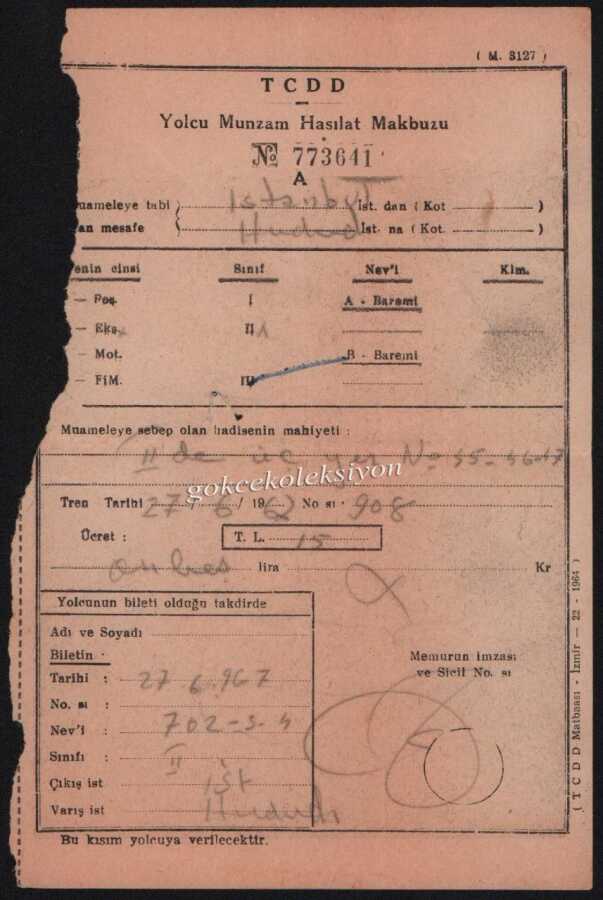 ( M. 3127 )
TCDD
Yolcu Munzam Hasılat Makbuzu
№ 773641
A
uameleye tabi ) Istanbul İst. dan ( Kot )
an mesafe ( Hudud İst. na ( Kot. )
enin cinsi Sınıf Nev'i Klm.
— Pos. I A - Baremi
— Eks. II
— Mot. B - Baremi
— FiM. III
Muameleye sebep olan hadisenin mahiyeti :
II de üç yer No 45-46-47
gokcekoleksiyon
Tren Tarihi 27 / 6 / 196 No sı · 908
Ücret : T. L. 15
onbeş lira Kr
Yolcunun bileti olduğu takdirde
Adı ve Soyadı
Biletin ·
Tarihi : 27 6 967
No. sı : 702-3-4
Nev'i :
Sınıfı : II
Çıkış ist İst
Varış ist Hudud
Memurun imzası
ve Sicil No. sı
Bu kısım yolcuya verilecektir.
( TCDD Matbaası - İzmir — 22 - 1964 )